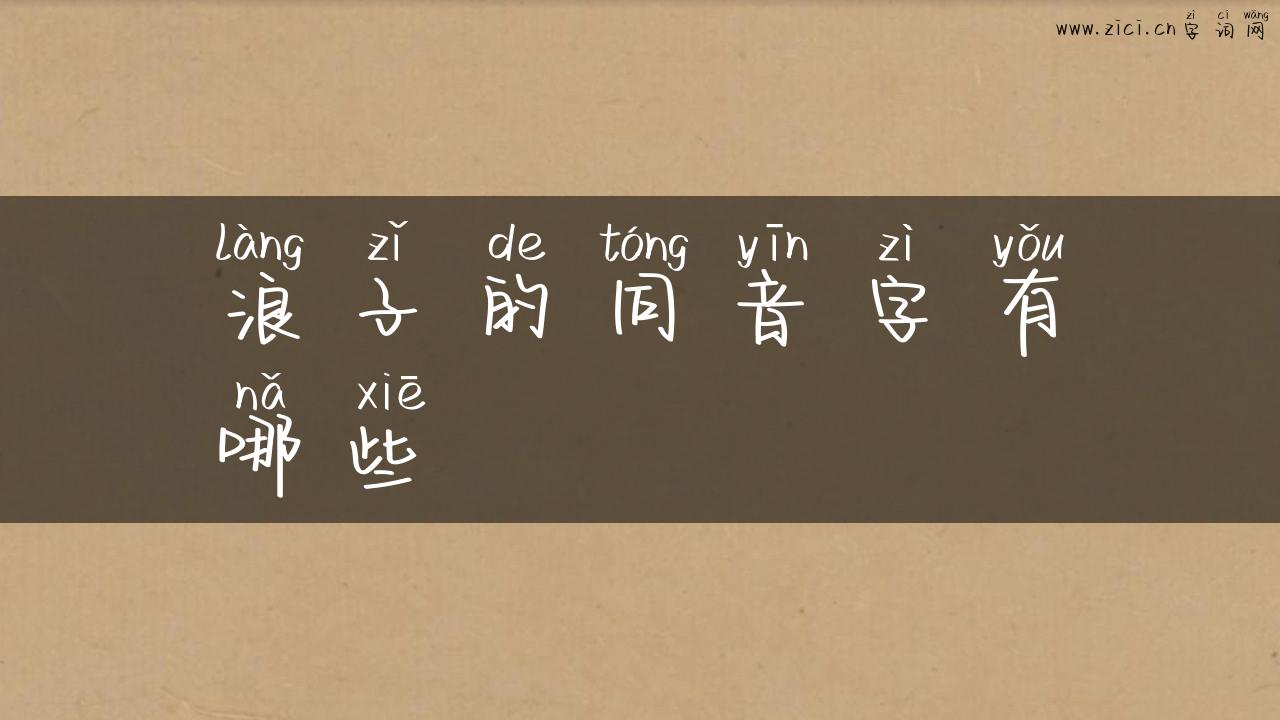 zì cí wǎng
www.zici.cn 字 词 网
làng zǐ de tóng yīn zì yǒu
浪 子 的 同 音 字 有
nǎ xiē
哪 些